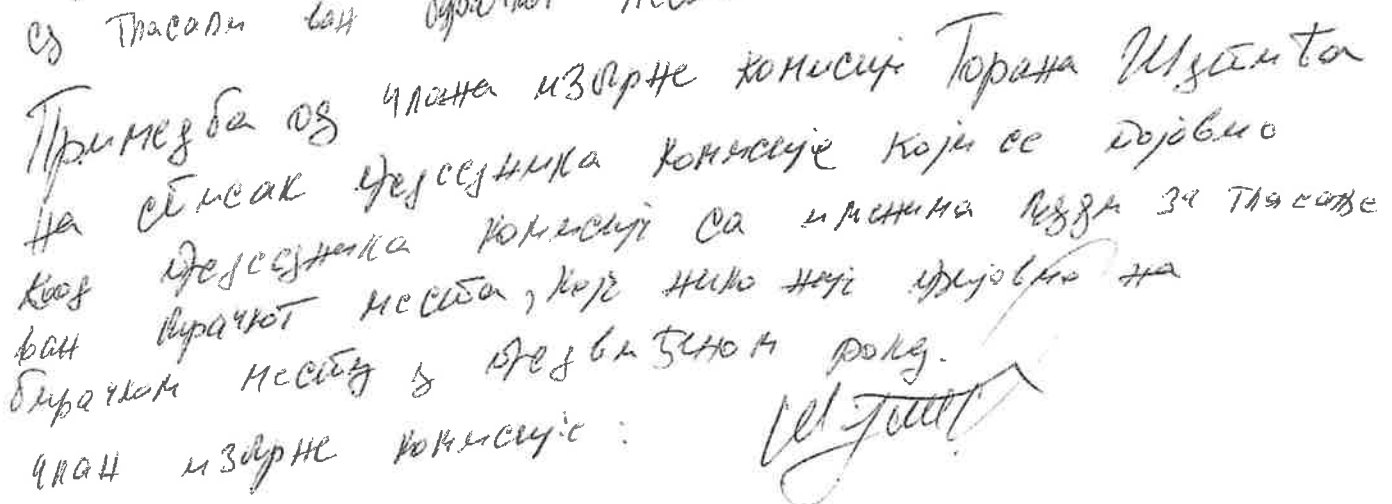 су гласали ван бирачког
Примедба од члана изборне комисије Горана
на списак председника комисије који се појавио
код председника комисије са именима људи за гласање
ван бирачког места, које нико није пријавио на
бирачком месту у предвиђеном року.
члан изборне комисије: